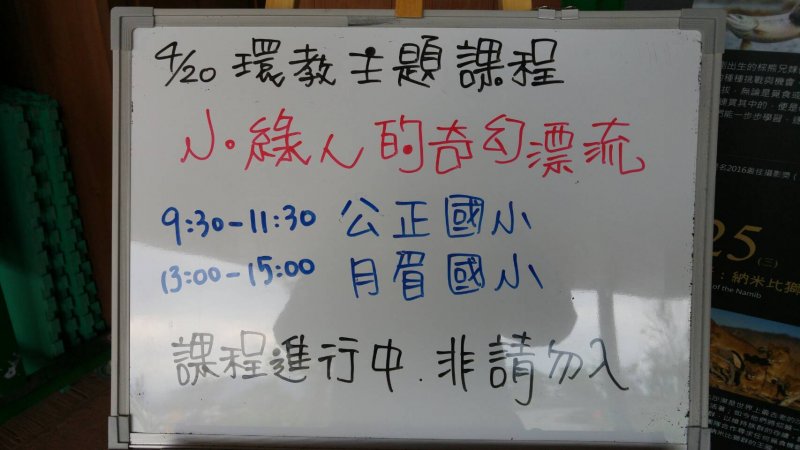 4/20 環教主題課程
小綠人的奇幻漂流
9:30-11:30 公正國小
13:00-15:00 月眉國小
課程進行中.非請勿入
25
(三)
：納米比獅
of the Namib